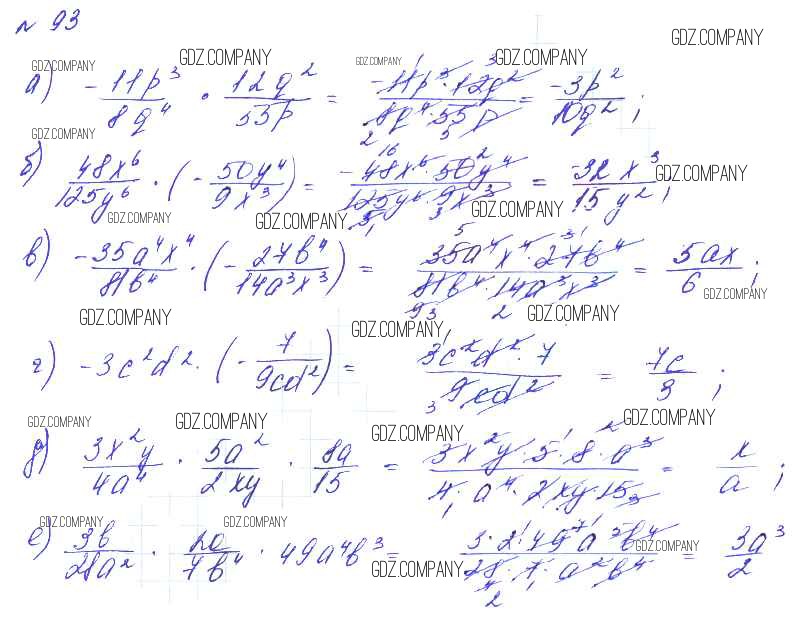 № 93
GDZ.COMPANY GDZ.COMPANY GDZ.COMPANY GDZ.COMPANY GDZ.COMPANY
а) -11p³/8q⁴ · 12q²/55p = -11p³·12q²/8q⁴·55p = -3p²/10q² ;
GDZ.COMPANY
б) 48x⁶/125y⁶ · (-50y⁴/9x³) = -48x⁶·50y⁴/125y⁶·9x³ = -32x³/15y² ;
GDZ.COMPANY
GDZ.COMPANY GDZ.COMPANY GDZ.COMPANY
в) -35a⁴x⁴/81b⁴ · (-27b⁴/14a³x³) = 35a⁴x⁴·27b⁴/81b⁴·14a³x³ = 5ax/6 ;
GDZ.COMPANY
GDZ.COMPANY GDZ.COMPANY GDZ.COMPANY
г) -3c²d² · (-7/9cd²) = 3c²d²·7/9cd² = 7c/3 ;
GDZ.COMPANY GDZ.COMPANY GDZ.COMPANY GDZ.COMPANY
д) 3x²y/4a⁴ · 5a²/2xy · 8a/15 = 3x²y·5·8·a³/4·a⁴·2xy·15 = x/a ;
GDZ.COMPANY GDZ.COMPANY
е) 3b/28a² · 2a/7b⁴ · 49a⁴b³ = 3·2·49a⁵b⁴/28·7·a²b⁴ = 3a³/2
GDZ.COMPANY GDZ.COMPANY